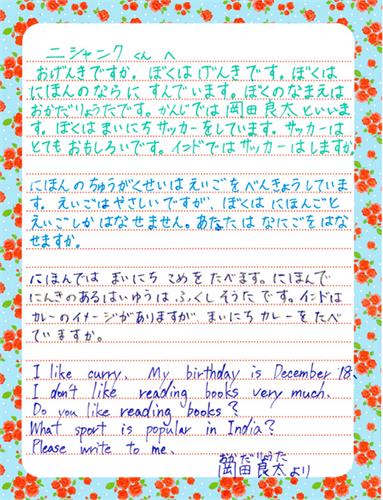 ニシャンクくんへ
おげんきですか。ぼくはげんきです。ぼくは
にほんのならにすんでいます。ぼくのなまえは
おかだりょうたです。かんじでは岡田良太といいま
す。ぼくはまいにちサッカーをしています。サッカーは
とてもおもしろいです。インドではサッカーはしますか。
にほんのちゅうがくせいはえいごをべんきょうしていま
す。えいごはやさしいですが、ぼくはにほんごと
えいごしかはなせません。あなたはなにごをはな
せますか。
にほんではまいにちこめをたべます。にほんで
にんきのあるはいゆうはふくしそうたです。インドは
カレーのイメージがありますが、まいにちカレーをたべ
ていますか。
I like curry. My birthday is December 18.
I don't like reading books very much.
Do you like reading books?
What sport is popular in India?
Please write to me.
おかだりょうた
岡田良太より